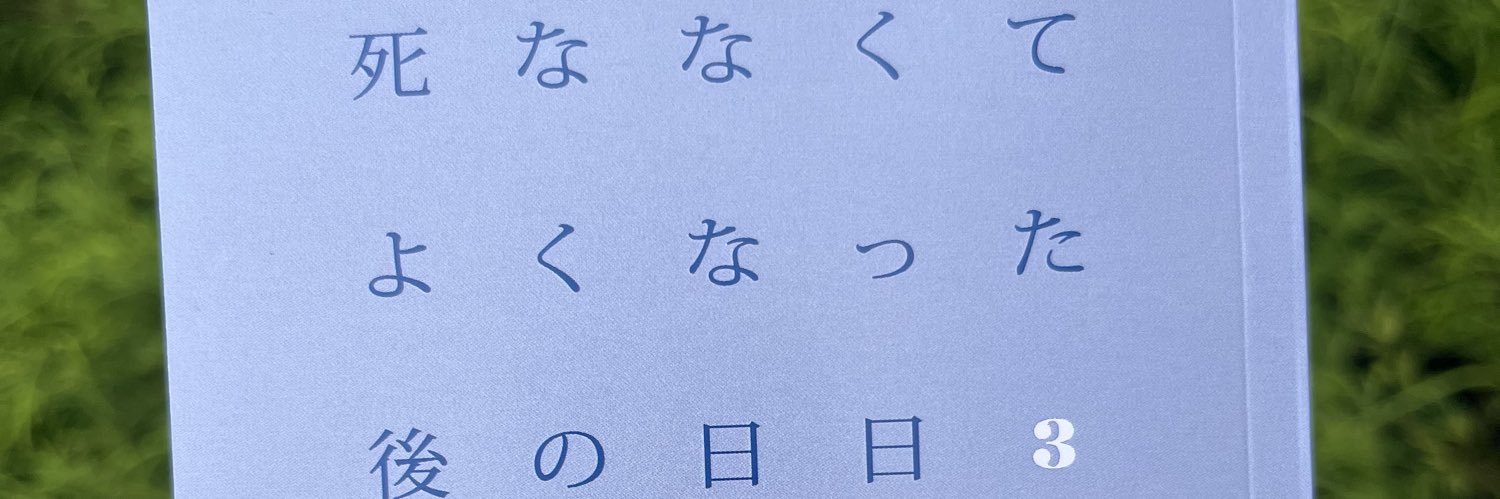 死ななくて
よくなった
後の日日3